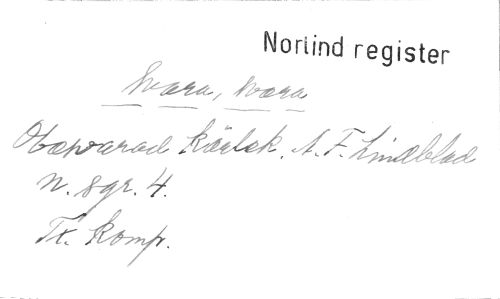 Norlind register
Svara, svara
Obesvarad kärlek. A. F. Lindblad
n. sgr. 4.
Tx. komp.